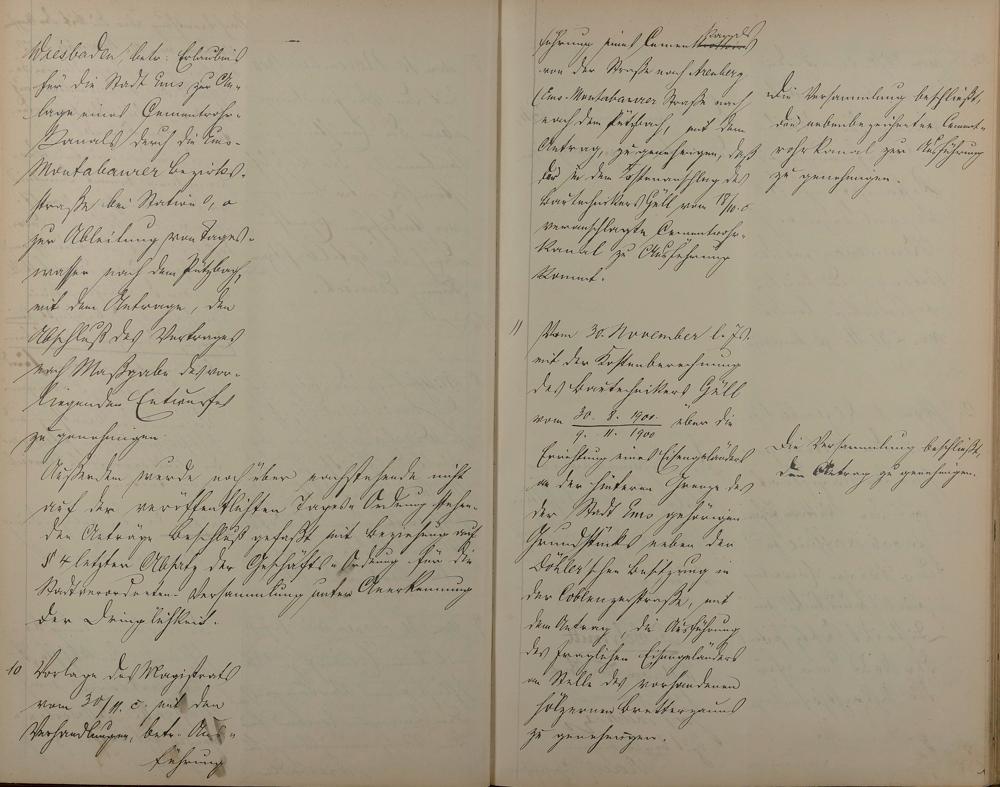 Wiesbaden, betr. Erlaubnis
für die Stadt Ems zur An-
lage eines Cementrohr-
Kanals durch die Ems-
Montabaurer Bezirks-
straße bei Station 0,0
zur Ableitung von Tages-
wasser nach dem Pützbach,
mit dem Antrage, den
Abschluß des Vertrages
nach Maßgabe des vor-
liegenden Entwurfes
zu genehmigen.
Außerdem wurde noch über nachstehende nicht
auf der veröffentlichten Tages-Ordnung stehen-
den Anträge Beschluß gefaßt mit Beziehung auf
§ 4 letzter Absatz der Geschäfts-Ordnung für die
Stadtverordneten-Versammlung unter Anerkennung
der Dringlichkeit.
10 Vorlage des Magistrats
vom 30/11. c. mit den
Verhandlungen, betr. Aus-
führung
führung eines Cement Kanals
von der Straße nach Arenberg
(Ems-Montabaurer Straße nach
nach dem Pützbach, mit dem
Antrag, zu genehmigen, daß
der in dem Kostenanschlag des
Bautechnikers Güll vom 18/10. c.
veranschlagte Cementrohr-
Kanal zu Ausführung
kommt.
Die Versammlung beschließt,
den nebenbezeichneten Cement-
rohrkanal zur Ausführung
zu genehmigen.
11 Vom 30. November l. Js.
mit der Kostenberechnung
des Bautechnikers Güll
vom 30. 8. 1900 / 9. 11. 1900 über die
Errichtung eines Eisengeländers
an der hinteren Grenze des
der Stadt Ems gehörigen
Grundstücks neben der
schen Besitzung in
der Coblenzerstraße, mit
dem Antrag, die Ausführung
des fraglichen Eisengeländers
an Stelle des vorhandenen
hölzernen Bretterzauns
zu genehmigen.
Die Versammlung beschließt,
den Antrag zu genehmigen.